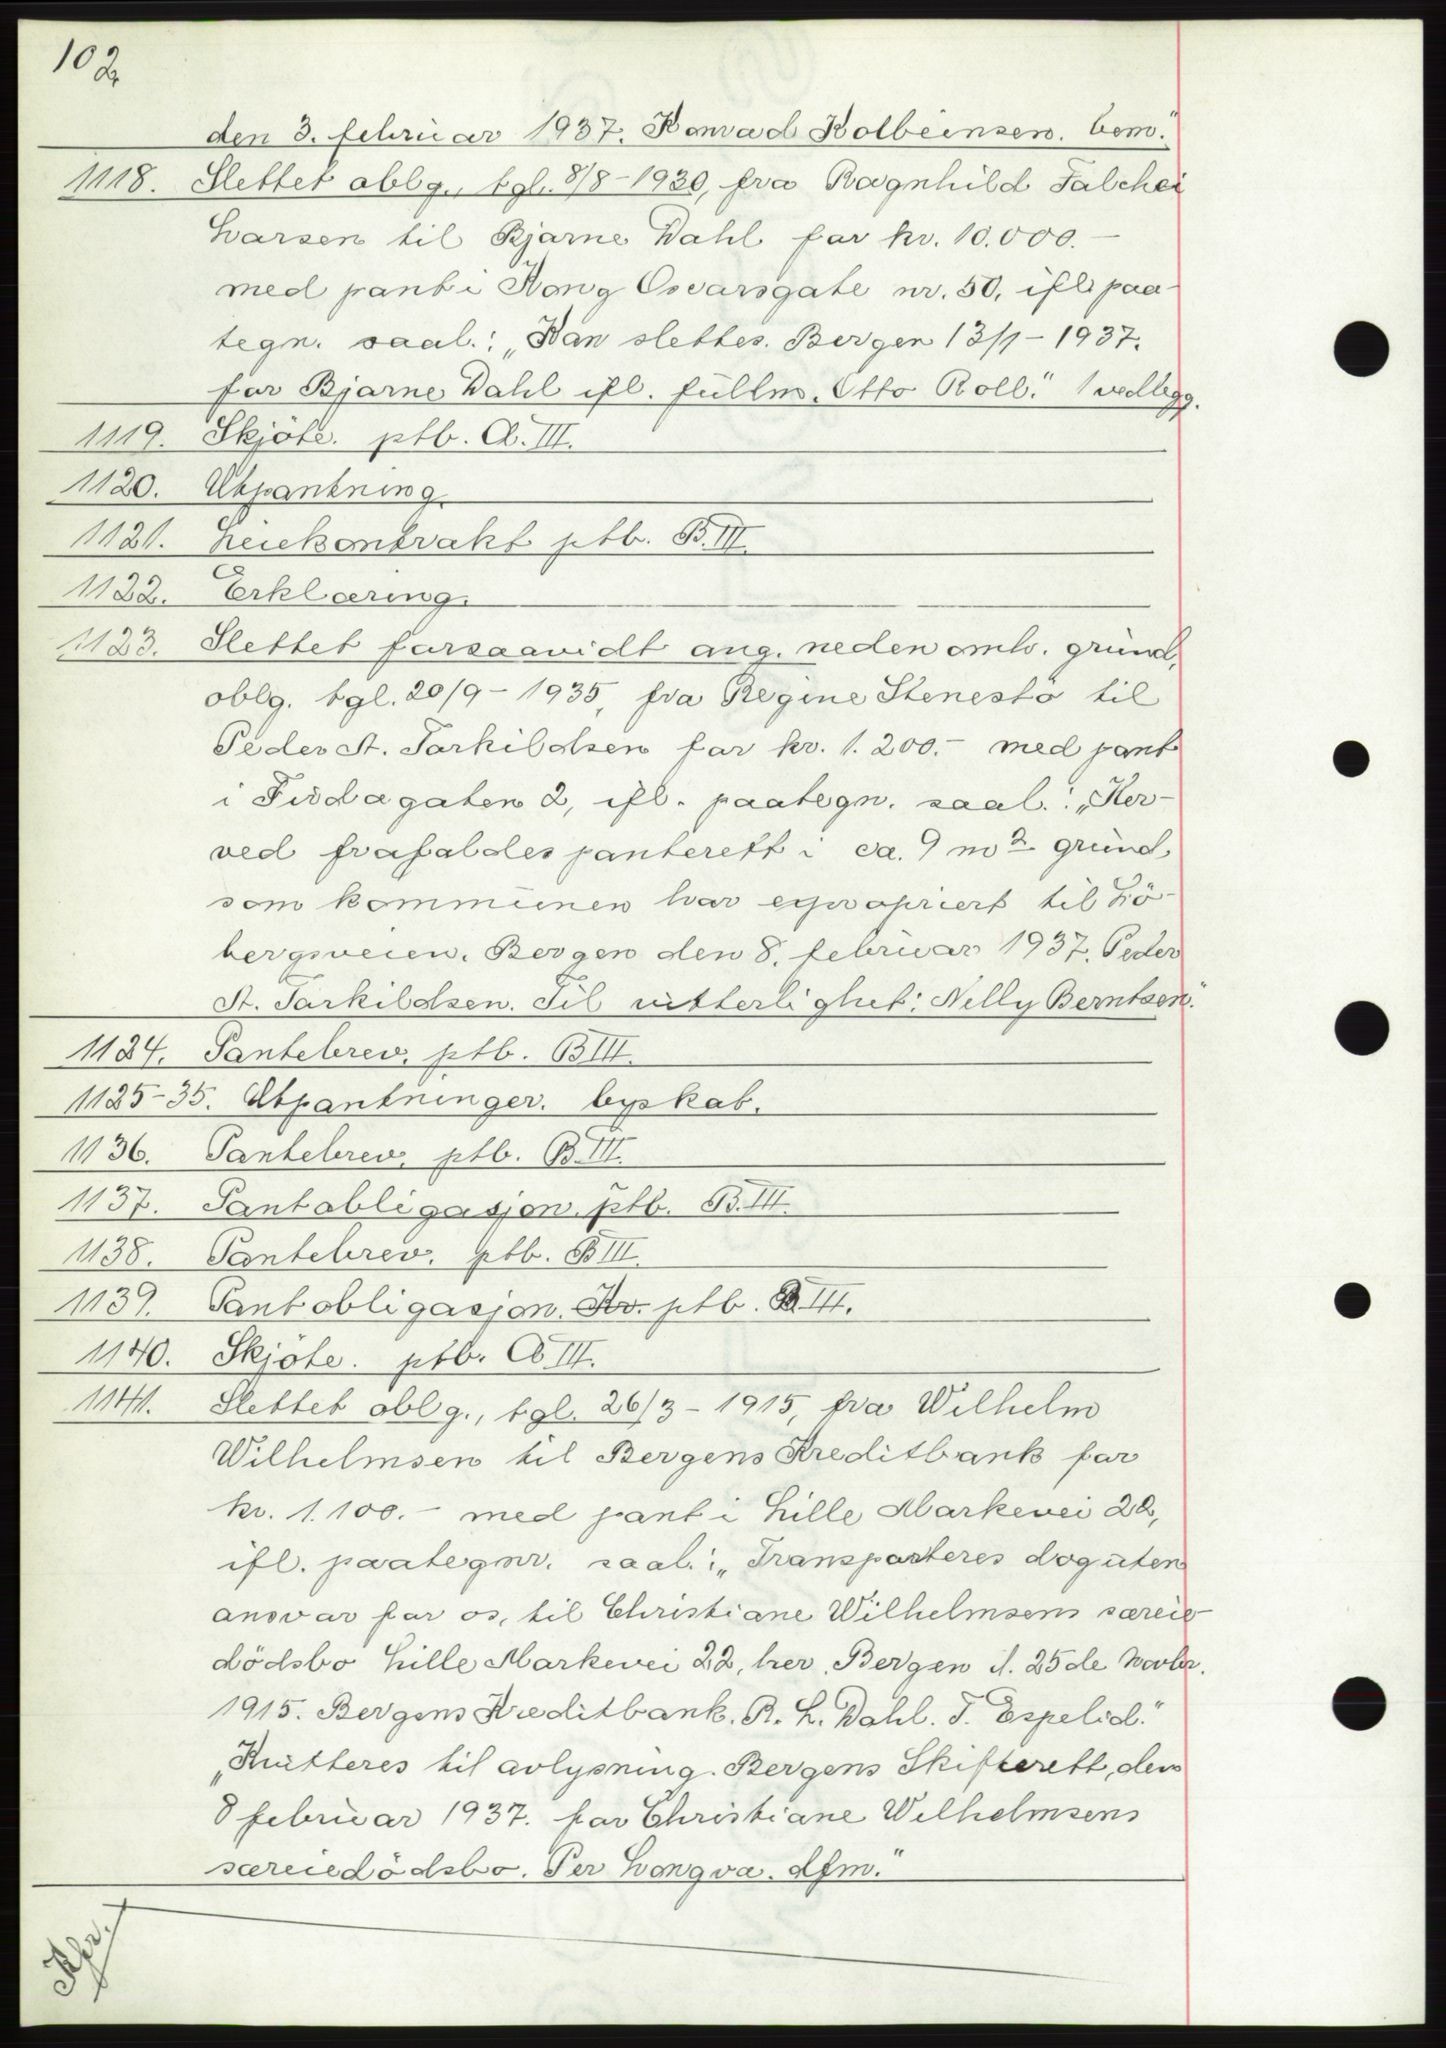 102
den 3. februar 1937. Konrad Kolbeinsen. bem."
1118. Slettet oblg., tgl. 8/8-1920, fra Ragnhild Falchei
Larsen til Bjarne Dahl for kr. 10.000.-
med pant i Kong Oscarsgate nr. 50, ifl. paa-
tegn. saal.: „Kan slettes. Bergen 13/1-1937.
for Bjarne Dahl ifl. fullm. Otto Roll." 1 vedlegg.
1119. Skjöte. ptb. A. III.
1120. Utpantning.
1121. Leiekontrakt ptb. B. III.
1122. Erklæring.
1123. Slettet forsaavidt ang. neden omh. grund,
oblg. tgl. 20/9-1935, fra Regine Stenestö til
Peder St. Torkildsen for kr. 1.200.- med pant
i Firdagaten 2, ifl. paategn. saal.: „Her-
ved frafaldes panterett i ca. 9 m2 grund
som kommunen har expropriert til Lö-
bergsveien. Bergen den 8. februar 1937. Peder
St. Torkildsen. Til vitterlighet: Nelly Berntsen."
1124. Pantebrev. ptb. B III.
1125-35. Utpantninger. byskat.
1136. Pantebrev. ptb. B. III.
1137. Pantobligasjon. ptb. B. III.
1138. Pantebrev. ptb. B III.
1139. Pantobligasjon. Kr. ptb. B. III.
1140. Skjöte. ptb. A III.
1141. Slettet oblg., tgl. 26/3-1915, fra Wilhelm
Wilhelmsen til Bergens Kreditbank for
kr. 1.100.- med pant i Lille Markevei 22,
ifl. paategnr. saal.: „Transporteres dog uten
ansvar for os, til Christiane Wilhelmsens særeie-
dödsbo Lille Markevei 22, her. Bergen d. 25de Novbr.
1915. Bergens Kreditbank. R. L. Dahl. T. Espelid."
„Kvitteres til avlysning. Bergens Skifterett, den
8 februar 1937. for Christiane Wilhelmsens
særeiedödsbo. Per Longva. dfm."
Kfr.